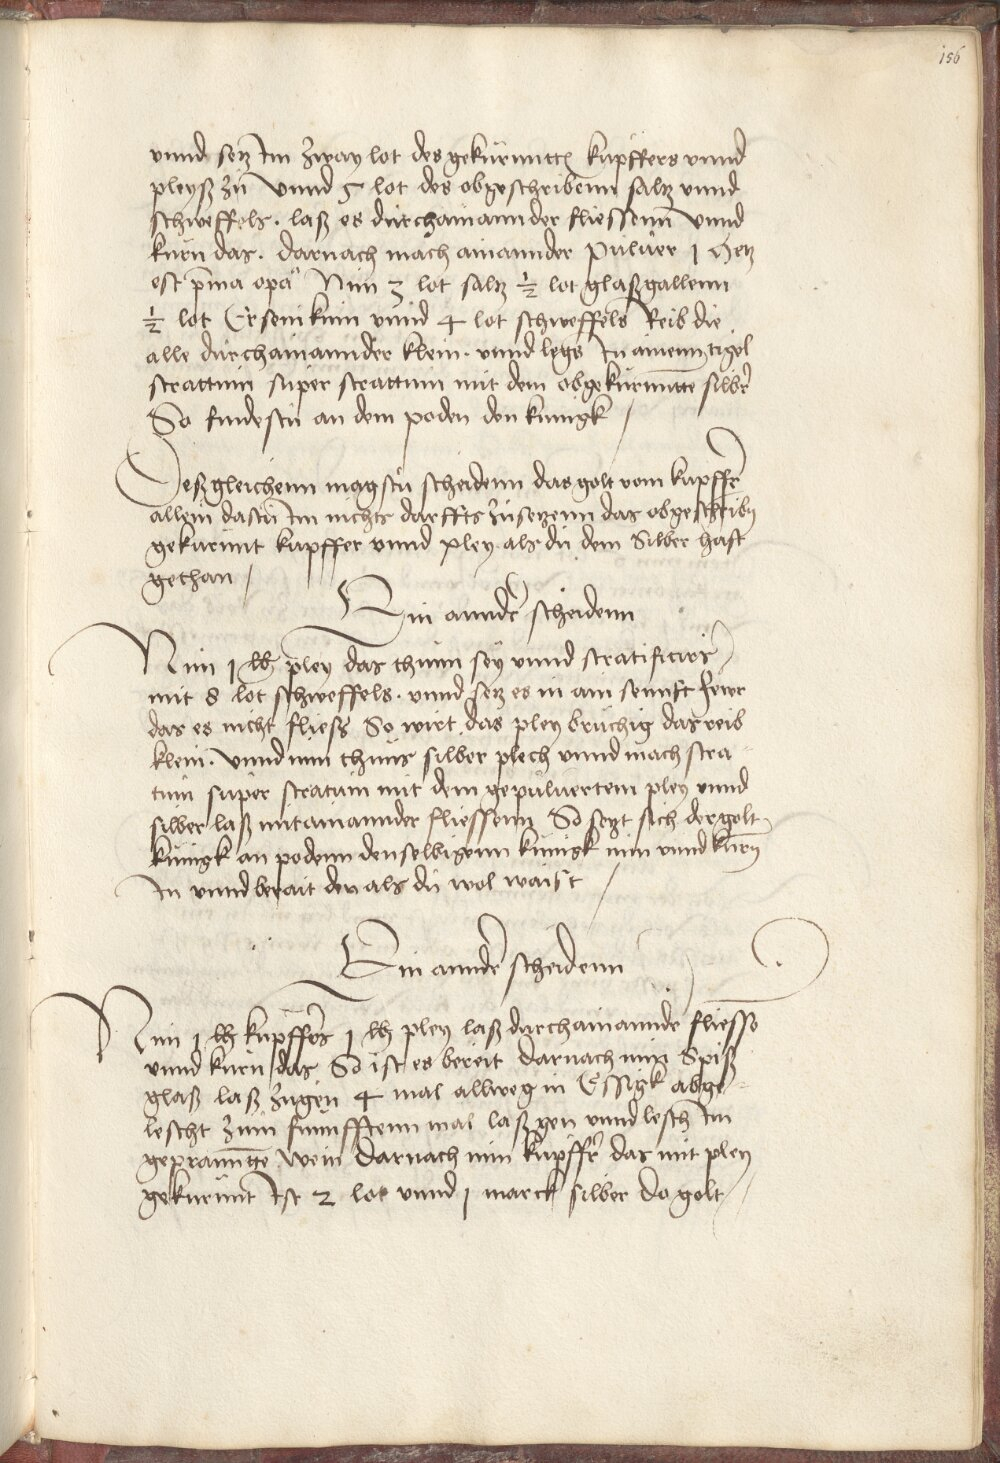 156
vnnd setz Im zway lot des gekürnntt kupffers vnnd
pleyß zu Vnnd 5 lot des obgeschribenn saltz vnnd
schweffels . laß es durchainannder fliessenn Vnnd
kurn das . darnach mach ainannder puluer 1 Hetz
est pma opa Nim 3 lot saltz ½ lot glaßgallenn
½ lot Ersenikum vnnd 4 lot schweffels Reib die
alle durchainannder klein . vnnd legs In ainenn tigel
strattum super strattum mit dem obgekurnntte silbr
So findestu an dem poden den kunigk /
Deßgleichenn magstu scheidenn das golt vom kupffr
allein dastu Im nichts darffts zusetzenn das obgeschribn
gekurnnt kupffer vnnd pley als du dem Silber hast
gethan /
Ein annder scheidenn
Nim 1 lb pley das thunn sey vnnd stratificirs
mit 8 lot schweffels . vnnd setz es in ain sennfft fewr
das es nicht fließ So wirt das pley bruchig das reib
klein . Vnnd nim thuns silber plech vnnd mach stra
tum super stratum mit dem gepuluertem pley vnnd
silber laß mitainannder fliessenn So setzt sich der golt
kunigk an podenn denselbigenn kunigk nim vnnd kurn
In vnnd berait den als du wol waist /
Ein annder scheidenn
Nim 1 lb kupffers 1 lb pley laß durchainannder fliesse
vnnd kurn das So ist es bereit Darnach nim Spiß
glaß laß zugen 4 mal allweg in Essigk abge-
lescht zum funfftenn mal laß gen vnnd lesch Im
gepranntte Wein Darnach nim kupffr das mit pley
gekurnnt Ist 2 lot vnnd 1 marck silber do golt